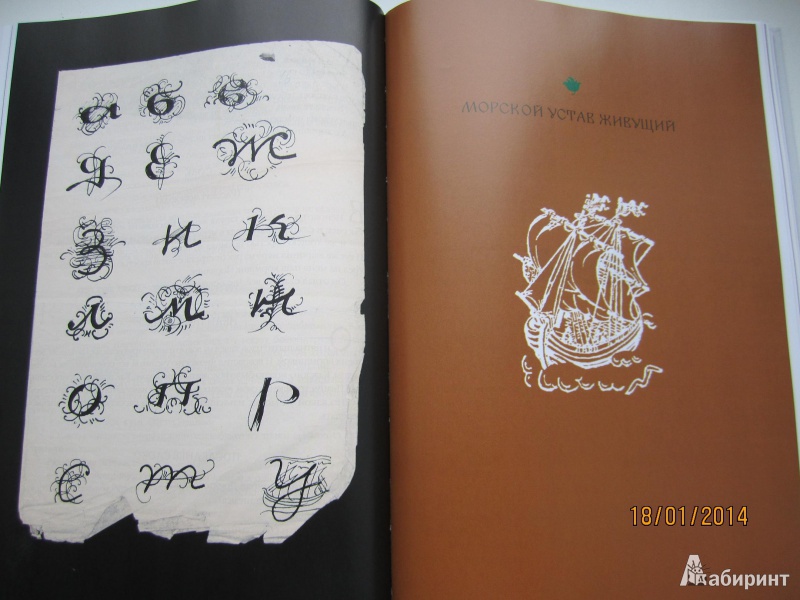 а б в
д е ж
з и к
л м н
о п р
с т у
МОРСКОЙ УСТАВ ЖИВУЩИЙ
18/01/2014
Лабиринт